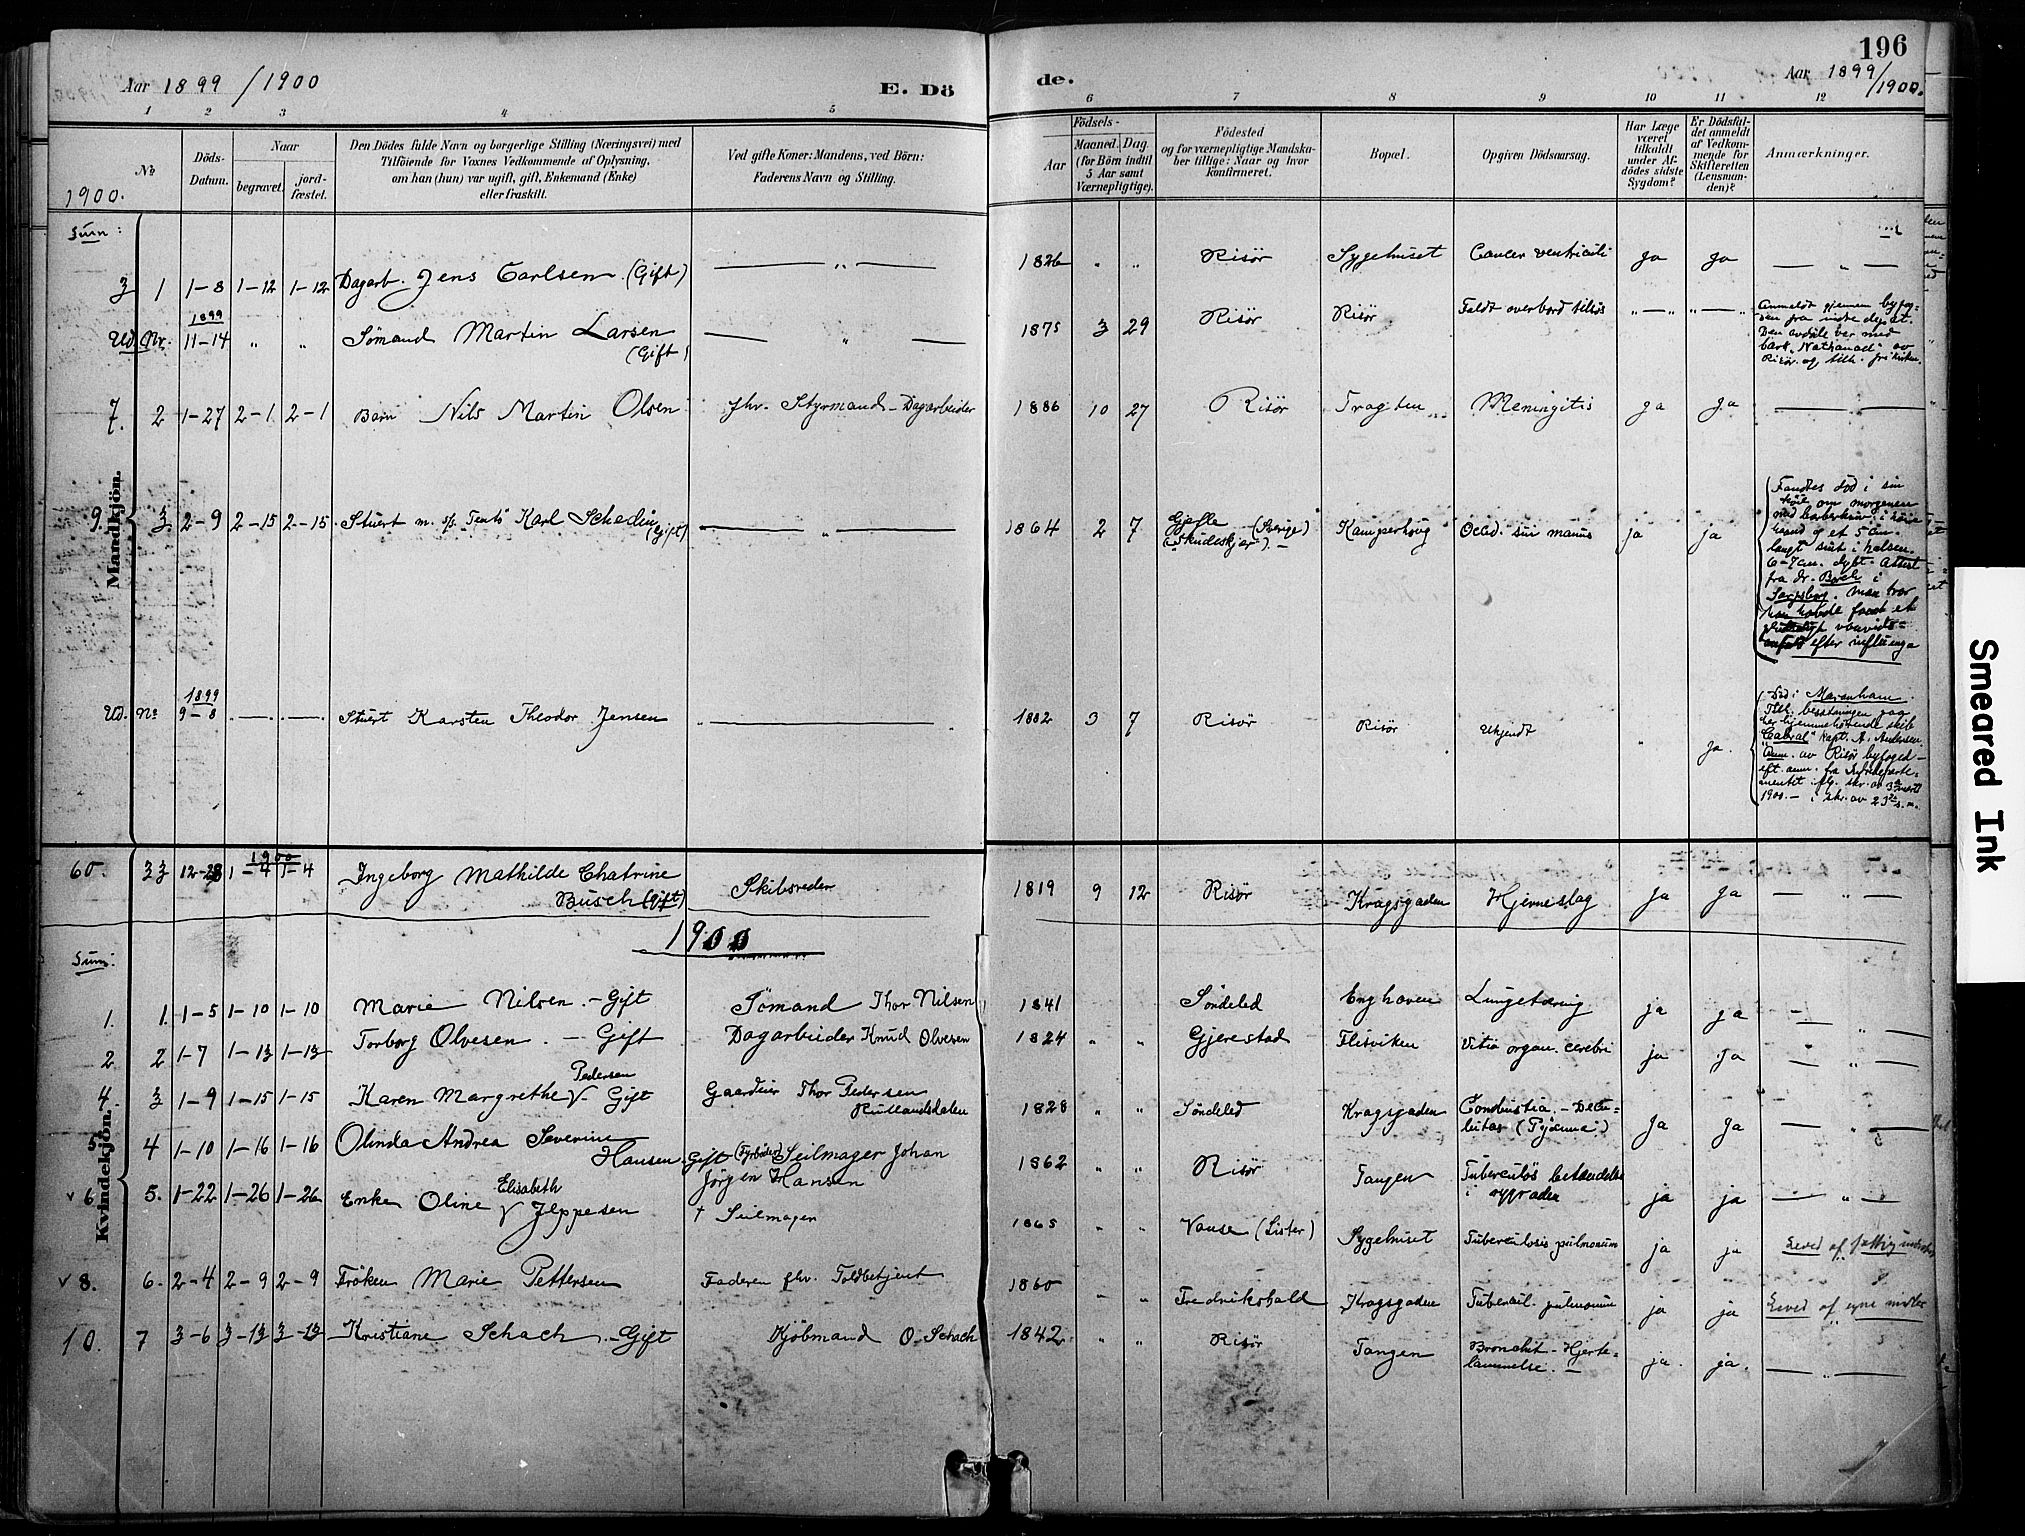 196
Aar 1899/1900
E. Dö
de.
Aar 1899/1900.
1 2 3 4 5 6 7 8 9 10 11 12
No
1900.
Döds-Datum.
Naar
begravet.
jord-fæstet.
Den Dödes fulde Navn og borgerlige Stilling (Næringsvei) med
Tilföiende for Voxnes Vedkommende af Oplysning,
om han (hun) var ugift, gift, Enkemand (Enke)
eller fraskilt.
Ved gifte Koner: Mandens, ved Börn:
Faderens Navn og Stilling.
Födsels-
Aar
Maaned. Dag
(for Börn indtil
5 Aar samt
Værnepligtige).
Födested
og for værnepligtige Mandska-
ber tillige: Naar og hvor
konfirmeret.
Bopæl.
Opgiven Dödsaarsag.
Har Læge
været
tilkaldt
under Af-
dödes sidste
Sygdom?
Er Dödsfal-
det anmeldt
af Vedkom-
mende for
Skifteretten
(Lensman-
den)?
Anmærkninger.
Sum:
Mandkjön.
3 1 1-8 1-12 1-12 Dagarb. Jens Carlsen (Gift) — " — 1826 " " Risör Sygehuset Cancer ventriculi ja ja — " —
Ud. Nr. 1899 11-14 " " Sømand Martin Larsen (Gift) — " — 1875 3 29 Risör Risör Faldt overbord tilsøs " — " " — "
Anmeldt gjennem byfog-
den fra indre dep.et.
Den avdøde var med
bark "Nathanael" av
Risör og tilh. frikirken.
7. 2 1-27 2-1 2-1 Barn Nils Martin Olsen fhv. Styrmand - Dagarbeider 1886 10 27 Risör Tragten Meningitis ja ja —
9. 3. 2-9 2-15 2-15 Stuert m. s/s Karl Schedin (Gift) — " — 1864 2 7 Gjefle (Sverige) Kamperhoug ja ja
Fandtes død i sin
køie om morgenen
med barberkniv i høire
haand og et 5 cm.
langt snit i halsen.
6-7 cm. dybt. Attest
fra dr. Borch i
Sarpsborg. man tror
han havde faaet et
vanvids=
anfald efter influenza
Ud. No 1899 9-8 — — Stuert Karsten Theodor Jensen — 1882 3 7 Risör Risör Ukjendt " ja.
Død i Maranham.
Tilh. besætningen paa
her hjemmehørende skib
"Cabral" kapt. A. Andersen.
Anm. av Risör byfoged
eft. anm. fra Indredeparte-
mentet iflg. skr. av 3die marts
1900. — i skr. av 23de s.m.
60. 33 12-28 1900 1-4 1-4 Ingeborg Mathilde Chatrine
Busch (Gift) Skibsreder 1819 9 12 Risör Kragsgaden Hjerneslag ja ja — " —
1900
Sum:
Kvindekjön.
1. 1. 1-5 1-10 1-10 Marie Nilsen. - Gift Sømand Thor Nilsen 1841 Søndeled Enghaven Lungetæring ja ja — " —
2. 2 1-7 1-13 1-13 Torborg Olvesen. - Gift Dagarbeider Knud Olvesen 1824 " " Gjerestad Flisviken Vitia organ. cerebri ja ja — " —
4. 3 1-9 1-15 1-15 Karen Margrethe V Pedersen Gift Gaardeier Thor Pedersen
1828 " " Søndeled Kragsgaden (Pyæmia?) ja ja — " —
5. 4 1-10 1-16 1-16 Olinda Andrea Severine
Hansen. Gift (Fyrbøder) Seilmager Johan
Jörgen Hansen 1862 " " Risör Tangen Tuberculøs betændelse
i rygraden ja ja — " —
v 6. 5. 1-22 1-26 1-26 Enke Oline V Elisabeth Jeppesen † Seilmager 1865 " " Vanse (Lister) Sygehuset Tuberculosis pulmonum ja ja Leved af
v 8. 6. 2-4 2-9 2-9 Frøken Marie Pettersen Faderen fhv. Toldbetjent 1860 " " Fredrikshald Kragsgaden Tubercul. pulmonum ja ja Leved af egne midler
10. 7 3-6 3-13 3-13 Kristiane Schach. - Gift Kjøbmand O. Schach 1842 " " Risör Tangen Bronchit - Hjerte=
lammelse. — ja. ja. — " —
Smeared Ink